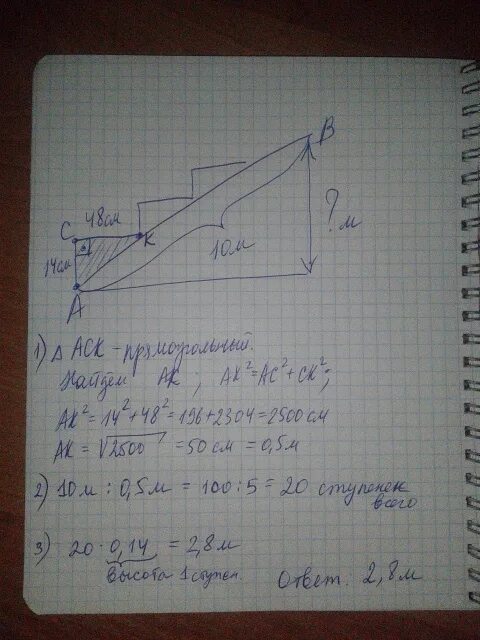 B
48см
C
K
?м
14см
10м
A
1) Δ ACK - прямоугольный.
Найдём AK ; AK²=AC²+CK²;
AK²=14²+48²=196+2304=2500 см
AK = √2500 = 50 см = 0,5м
2) 10м : 0,5м = 100:5 = 20 ступенек
всего
3) 20 · 0,14 = 2,8м
высота 1 ступен.
Ответ: 2,8м